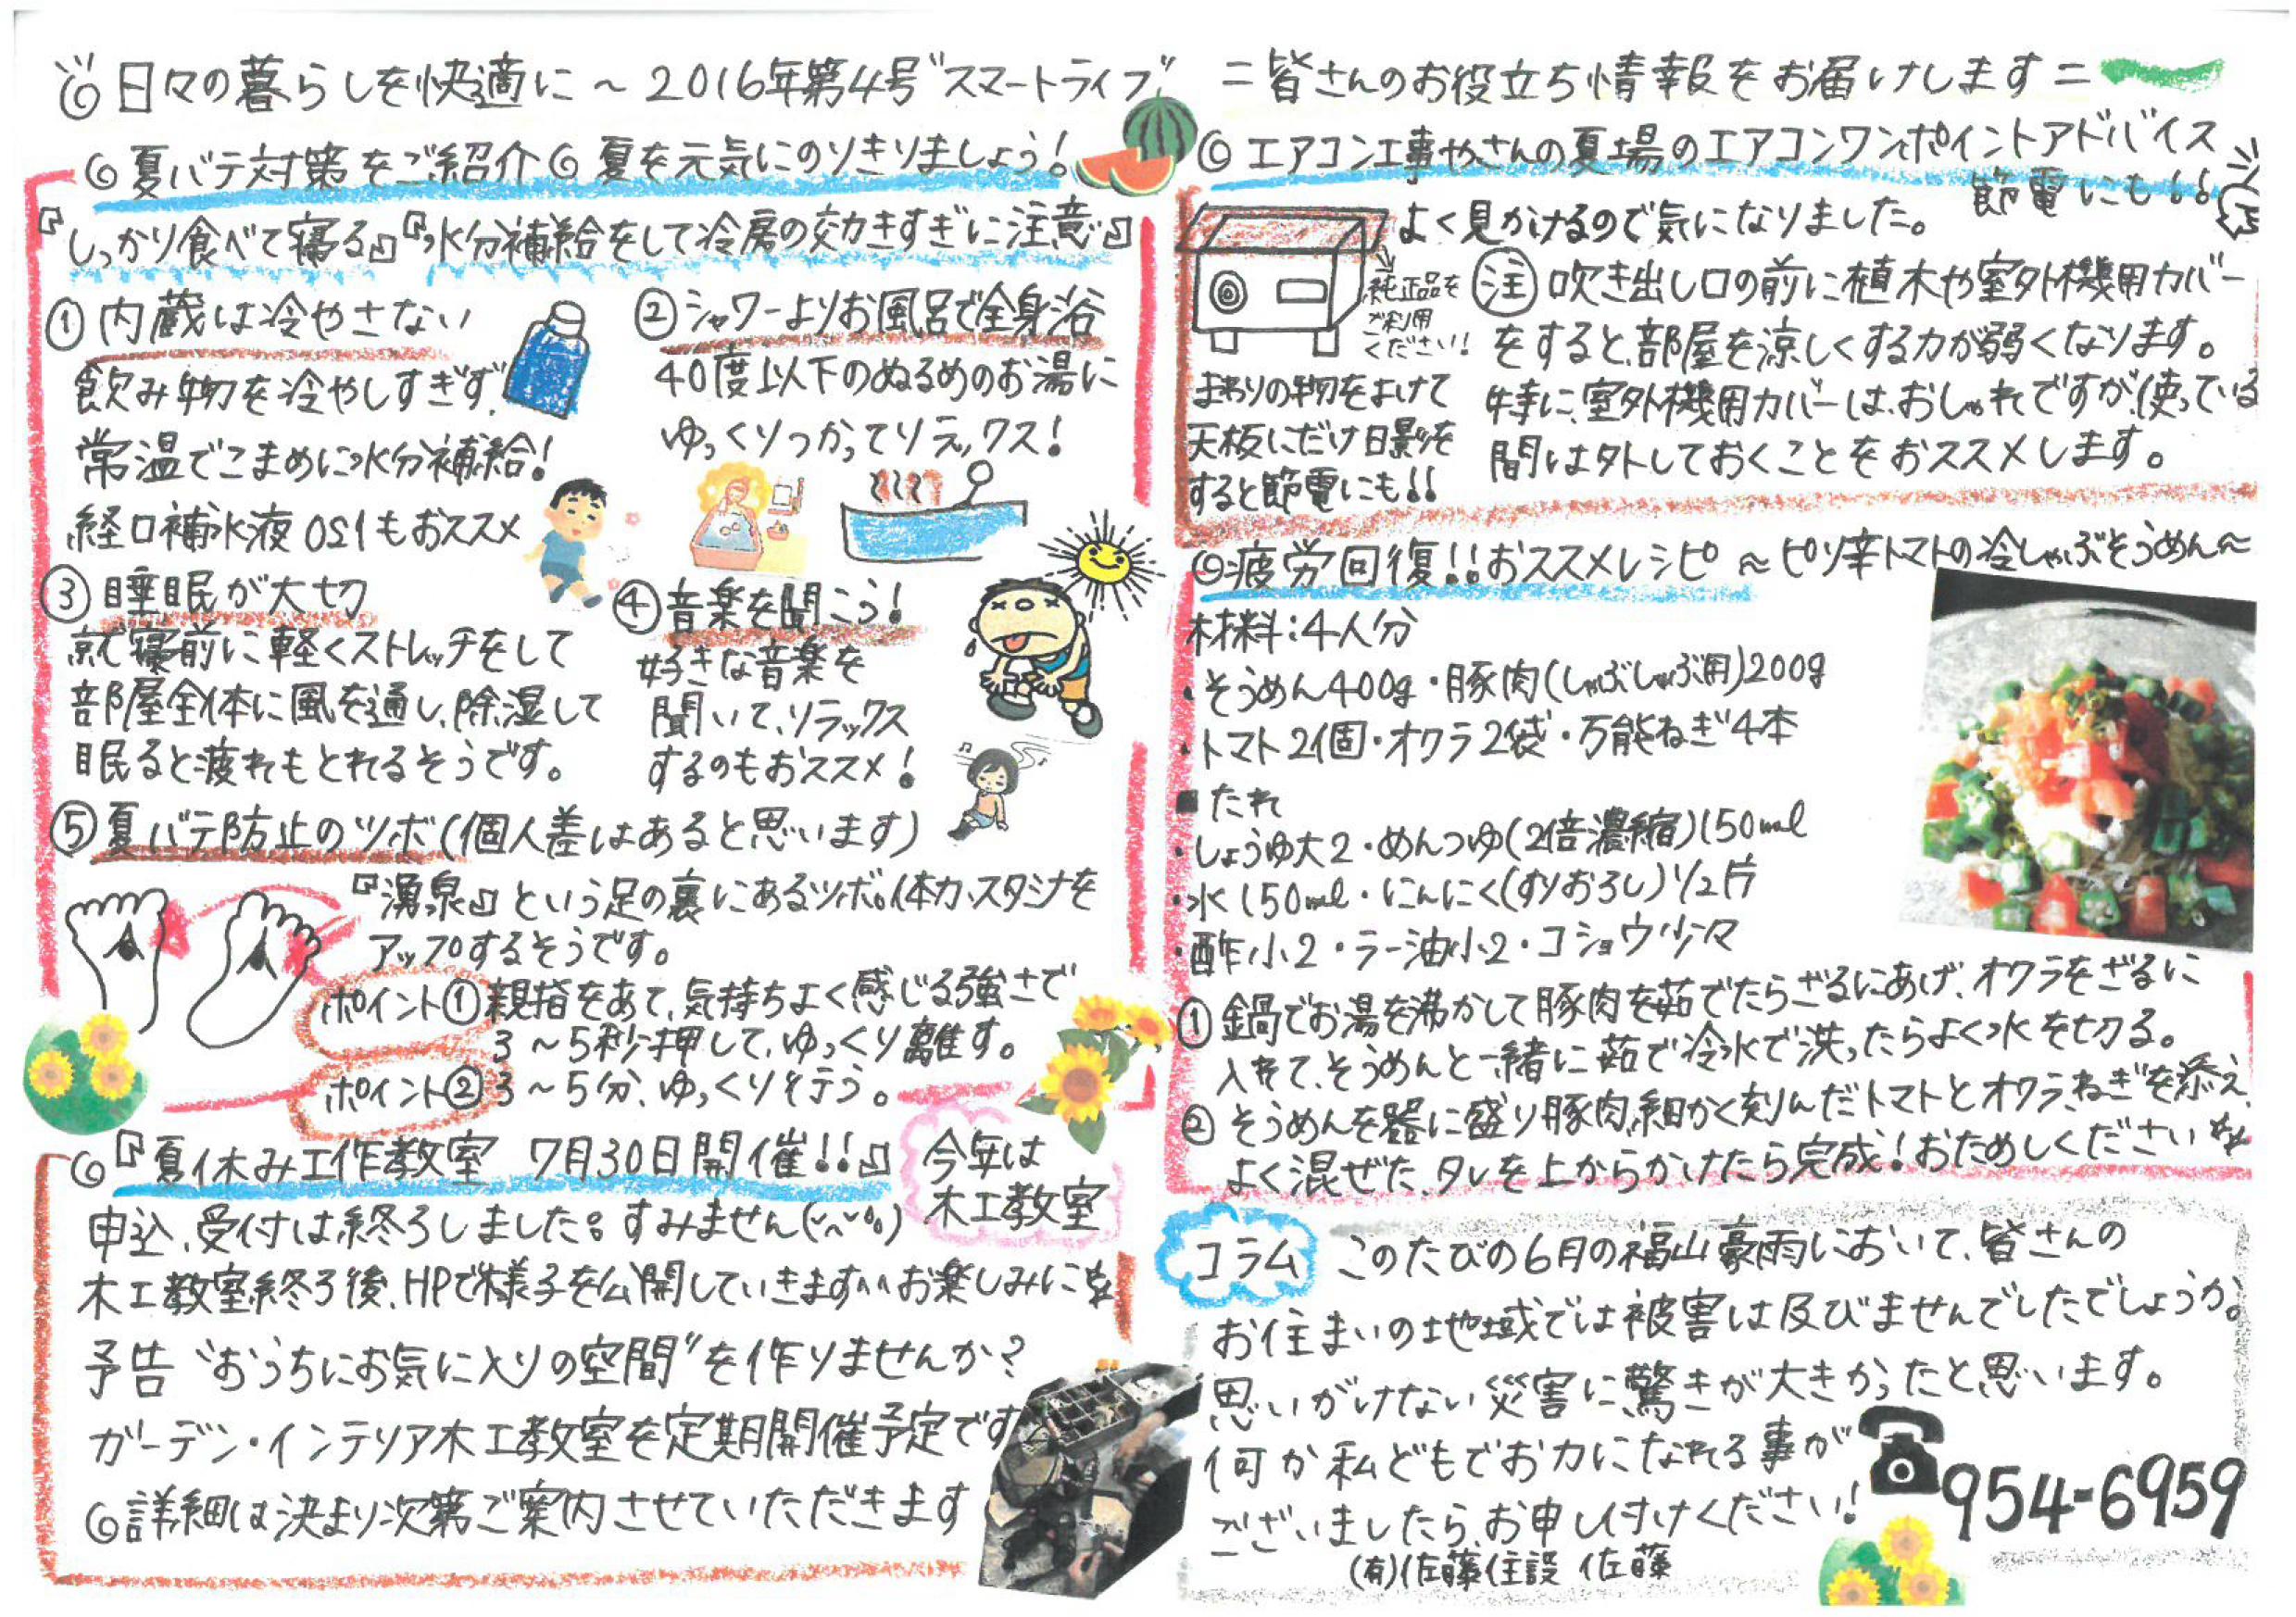 ◎日々の暮らしを快適に～2016年第4号"スマートライフ" =皆さんのお役立ち情報をお届けします=
◎夏バテ対策をご紹介◎夏を元気にのりきりましょう!
『しっかり食べて寝る』『水分補給をして冷房の効きすぎに注意』
①内蔵は冷やさない
飲み物を冷やしすぎず、
常温でこまめに水分補給!
経口補水液OS1もおススメ
②シャワーよりお風呂で全身浴
40度以下のぬるめのお湯に
ゆっくりつかってリラックス!
③睡眠が大切
就寝前に軽くストレッチをして
部屋全体に風を通し、除湿して
眠ると疲れもとれるそうです。
④音楽を聞こう!
好きな音楽を
聞いて、リラックス
するのもおススメ!
⑤夏バテ防止のツボ(個人差はあると思います)
『湧泉』という足の裏にあるツボ。体力、スタミナを
アップするそうです。
ポイント①親指をあて、気持ちよく感じる強さで
3～5秒押して、ゆっくり離す。
ポイント②3～5分、ゆっくり行う。
◎『夏休み工作教室 7月30日開催!!』
今年は
木工教室
申込、受付は終了しました。すみません
木工教室終了後、HPで様子を公開していきます^^お楽しみに
予告"おうちにお気に入りの空間"を作りませんか?
ガーデン・インテリア木工教室を定期開催予定です
◎詳細は決まり次第ご案内させていただきます
◎エアコン工事やさんの夏場のエアコンワンポイントアドバイス
節電にも!!
よく見かけるので気になりました。
純正品を
ご利用
ください!
まわりの物をよけて
天板にだけ日影を
すると節電にも!!
注 吹き出し口の前に植木や室外機用カバー
をすると、部屋を涼しくする力が弱くなります。
特に、室外機用カバーは、おしゃれですが、使っている
間は外しておくことをおススメします。
◎疲労回復!!おススメレシピ ～ピリ辛トマトの冷しゃぶそうめん～
材料:4人分
・そうめん400g・豚肉(しゃぶしゃぶ用)200g
・トマト2個・オクラ2袋・万能ねぎ4本
■たれ
・しょうゆ大2・めんつゆ(2倍濃縮)150ml
・水150ml・にんにく(すりおろし)1/2片
・酢小2・ラー油小2・コショウ少々
①鍋でお湯を沸かして豚肉を茹でたらざるにあげ、オクラをざるに
入れて、そうめんと一緒に茹で冷水で洗ったらよく水を切る。
②そうめんを器に盛り豚肉、細かく刻んだトマトとオクラ、ねぎを添え、
よく混ぜた、タレを上からかけたら完成!おためしください
コラム このたびの6月の福山豪雨において、皆さんの
お住まいの地域では被害は及びませんでしたでしょうか。
思いがけない災害に驚きが大きかったと思います。
何か私どもでお力になれる事が
ございましたら、お申し付けください!
954-6959
(有)佐藤住設 佐藤